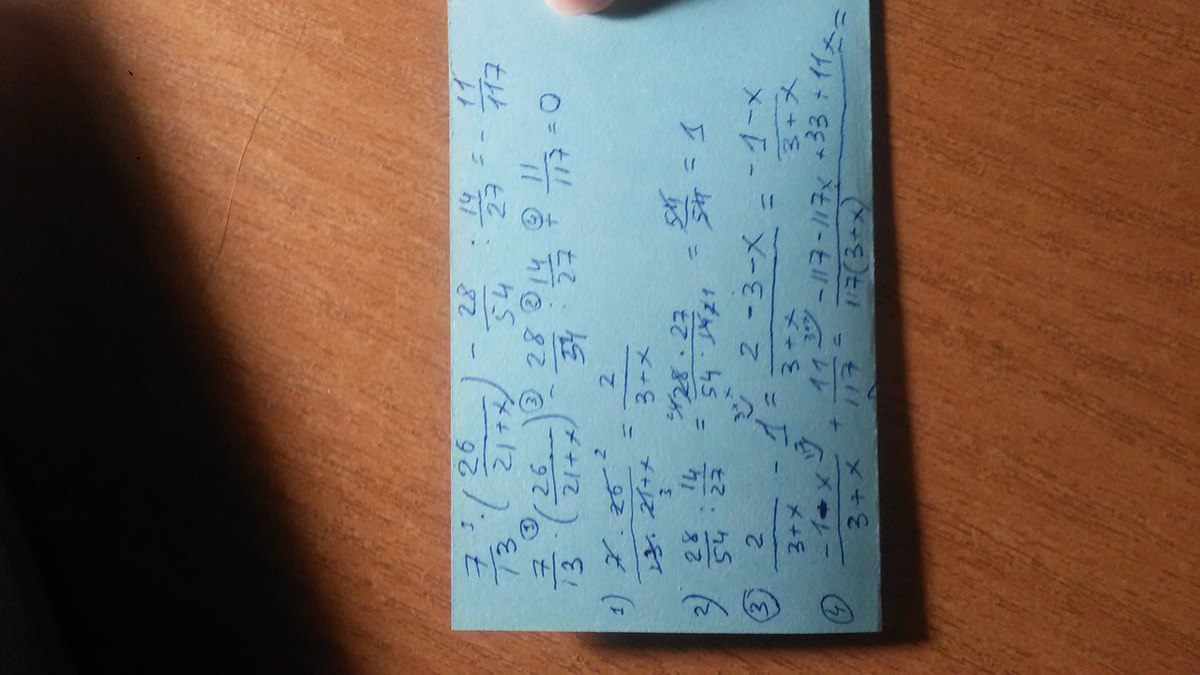 7/13 · (26/21+x) - 28/54 : 14/27 = - 11/117
7/13 ① · (26/21+x) ③ - 28/54 ② : 14/27 ④ + 11/117 = 0
1) 7 · 26 2 / 13 · 21+x 3 = 2/3+x
2) 28/54 : 14/27 = 28 · 27 / 54 · 14 1 = 54/54 = 1
③ 2/3+x - 1 3+x = 2-3-x/3+x = -1-x/3+x
④ -1-x/3+x + 11/117 = -117-117x+33+11x/117(3+x) =